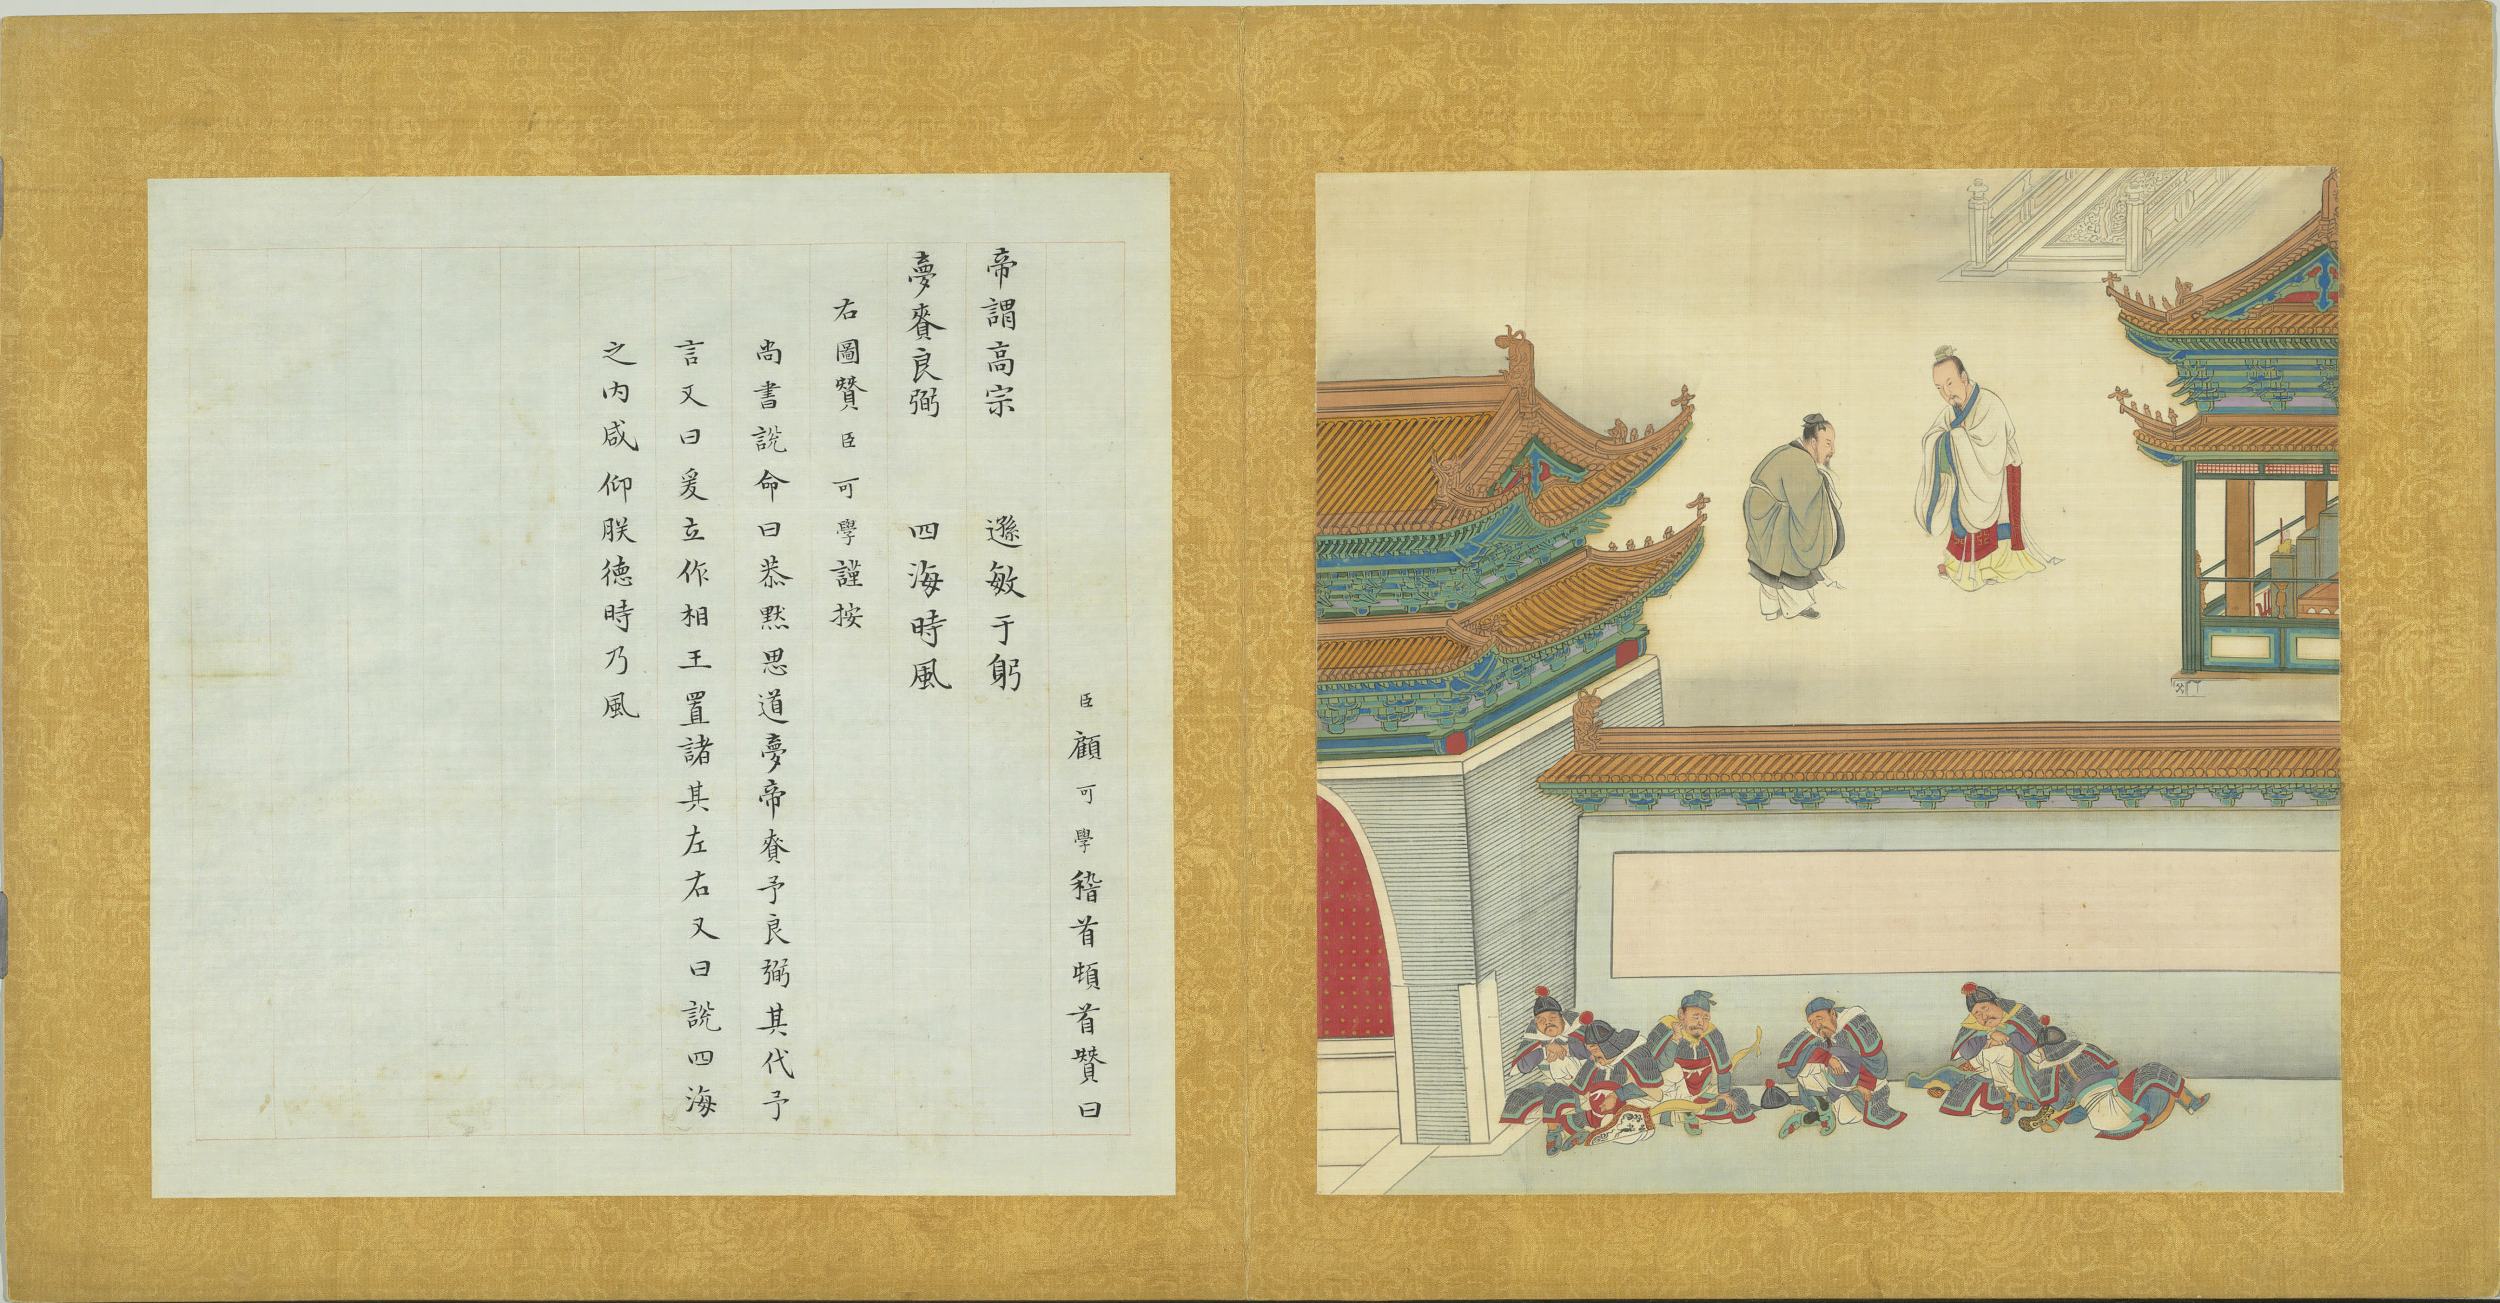 臣顧可學稽首頓首贊曰
帝謂高宗　遜敏于躬
夢賚良弼　四海時風
右圖贊臣可學謹按
尚書說命曰恭默思道夢帝賚予良弼其代予
言又曰爰立作相王置諸其左右又曰說四海
之内咸仰朕德時乃風